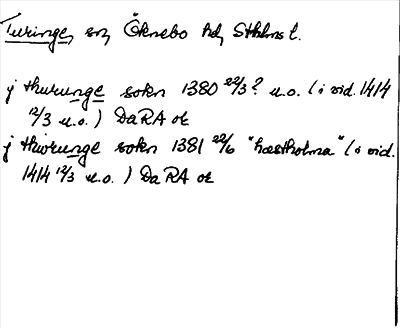 Turinge, sn, Öknebo hd, Sthlms l.
j thurunge sokn 1380 22/3? u.o. (i vid. 1414
12/3 u.o.) Da RA or
j thiorunge sokn 1381 22/6 "hæstholma" (i vid.
1414 12/3 u.o.) Da RA or